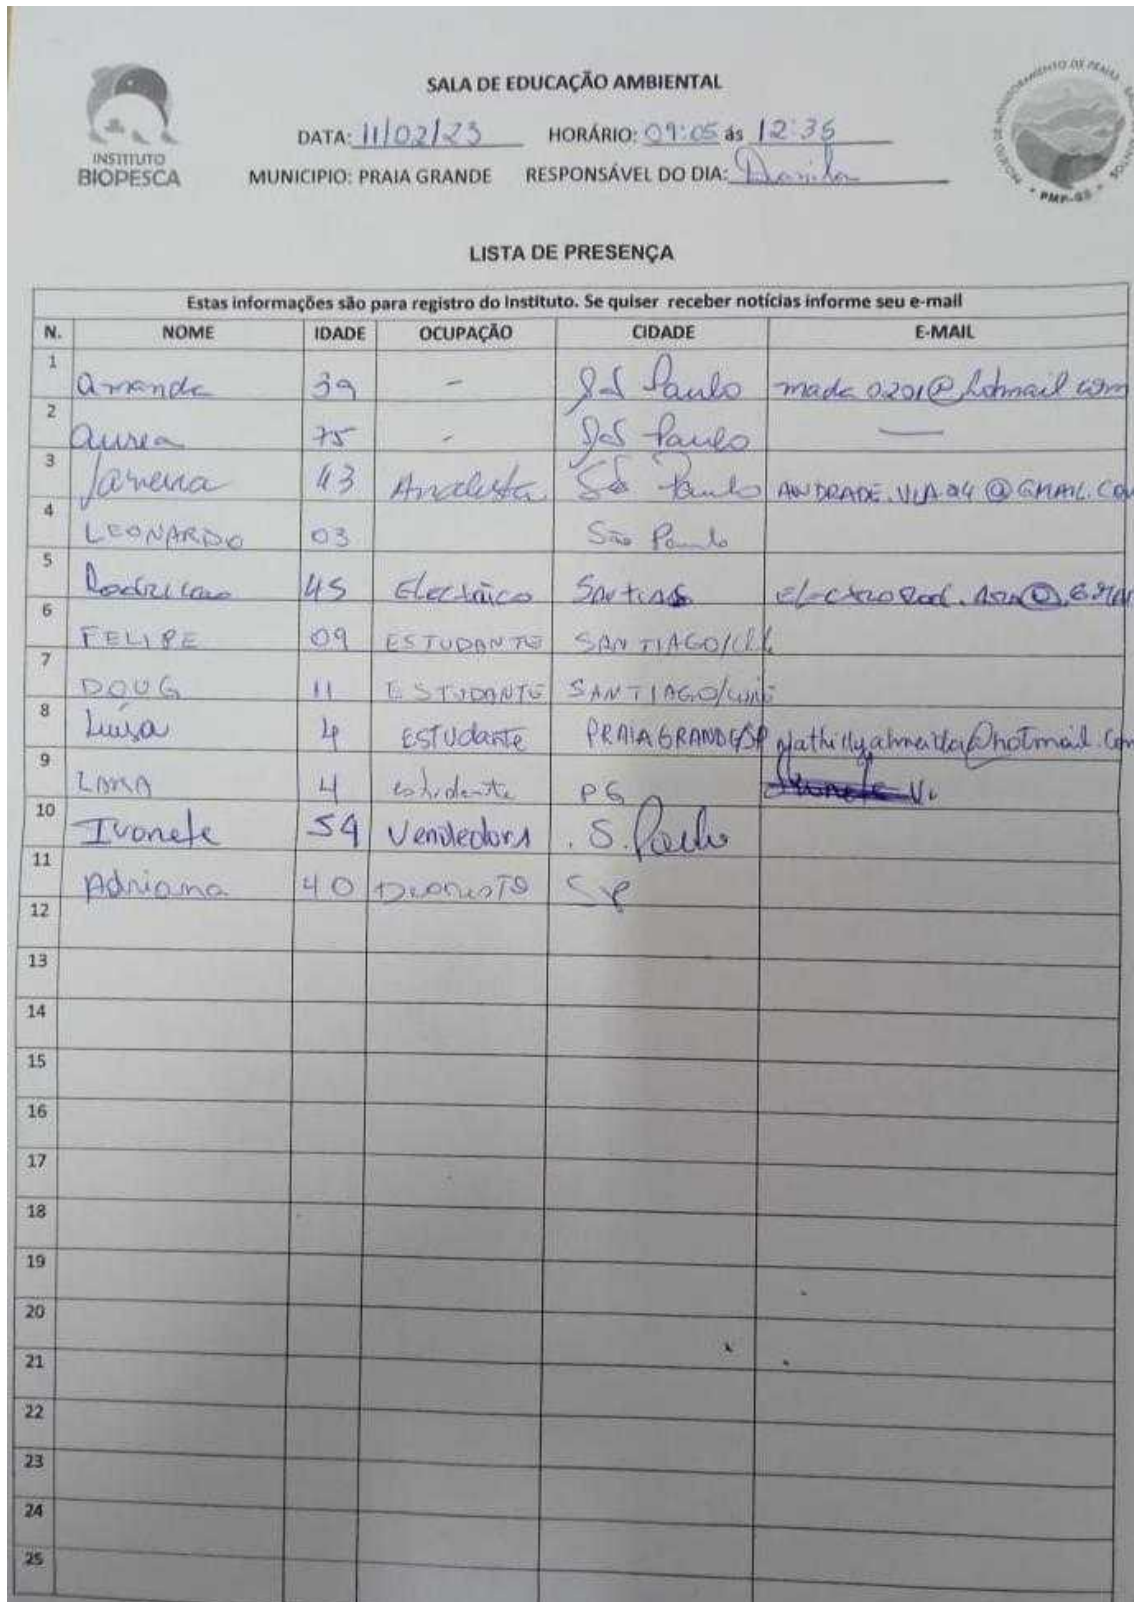 INSTITUTO
BIOPESCA
SALA DE EDUCAÇÃO AMBIENTAL
DATA: 11/02/23 HORÁRIO: 09:05 ás 12:35
MUNICIPIO: PRAIA GRANDE RESPONSÁVEL DO DIA: Danila
PMP-BS
LISTA DE PRESENÇA
Estas informações são para registro do Instituto. Se quiser receber notícias informe seu e-mail
N. NOME IDADE OCUPAÇÃO CIDADE E-MAIL
1 Amanda 39 - São Paulo mada0201@hotmail.com
2 Aurea 75 - São Paulo —
3 43 Analista São Paulo
4 LEONARDO 03 São Paulo
5 Rodrigo 45 Electrico
6 FELIPE 09 ESTUDANTE
7 DOUG 11 ESTUDANTE
8 Luisa 4 ESTUdante PRAIA GRANDE/SP
9 LARA 4 estudante PG
10 Ivonete 54 Vendedora S. Paulo
11 Adriana 40 SP
12
13
14
15
16
17
18
19
20
21
22
23
24
25